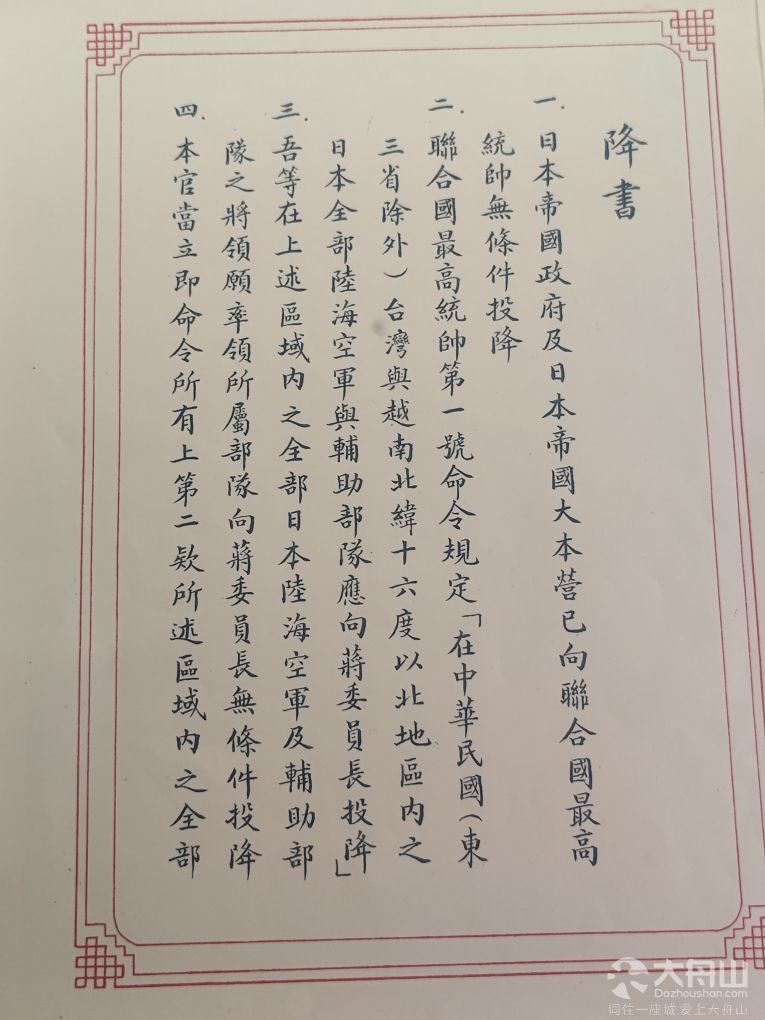 降書
一.日本帝國政府及日本帝國大本營已向聯合國最高
統帥無條件投降
二.聯合國最高統帥第一號命令規定「在中華民國(東
三省除外)台灣與越南北緯十六度以北地區內之
日本全部陸海空軍與輔助部隊應向蔣委員長投降」
三.吾等在上述區域內之全部日本陸海空軍及輔助部
隊之將領願率領所屬部隊向蔣委員長無條件投降
四.本官當立即命令所有上第二款所述區域內之全部
大舟山
Dazhoushan.com
同住一座城,爱上大舟山